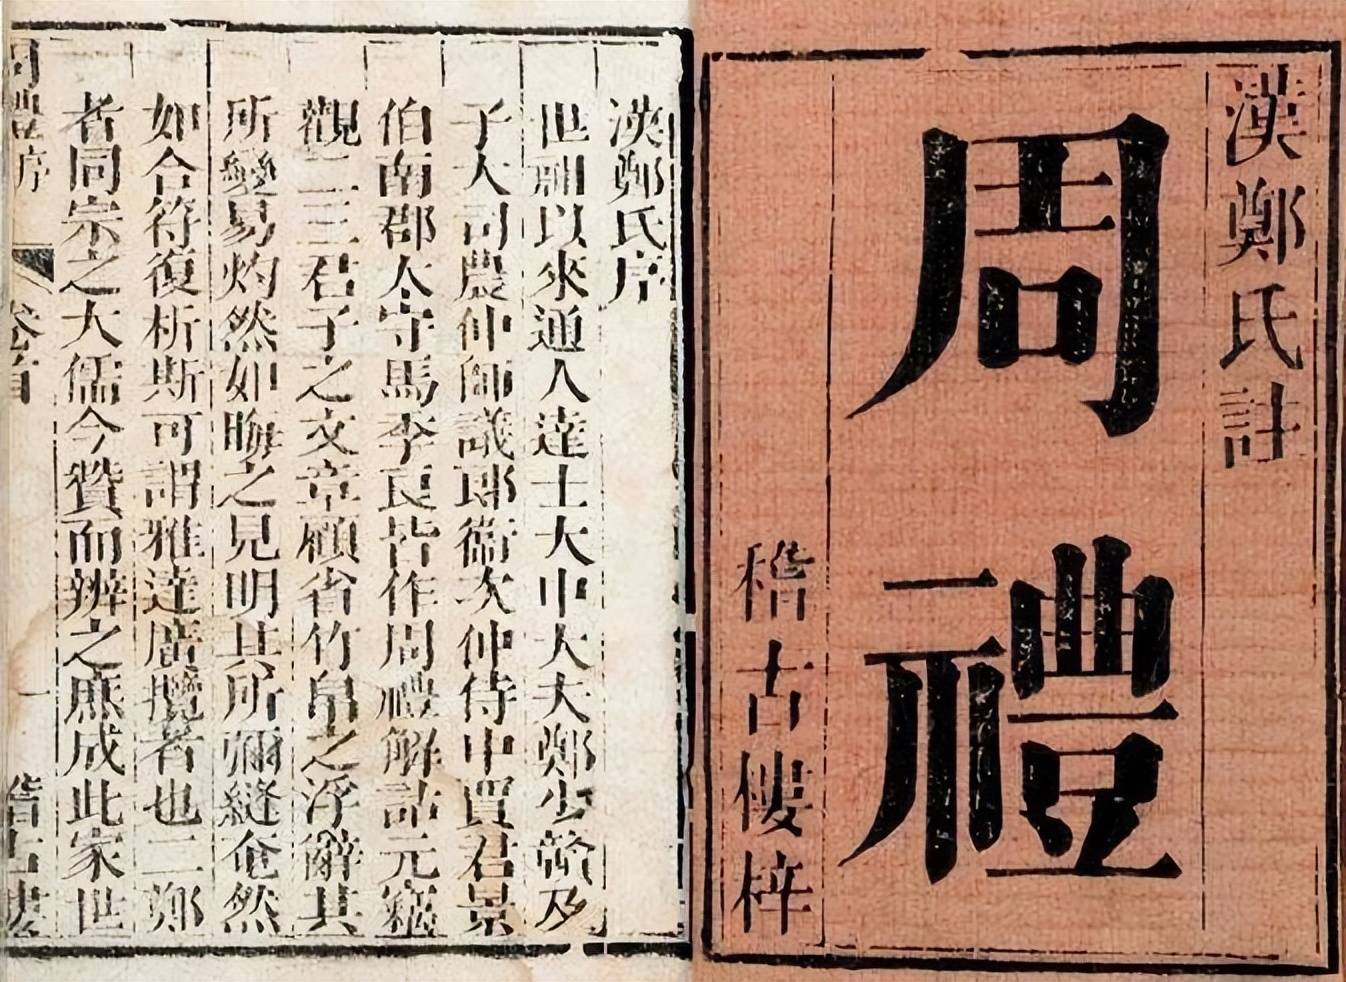 漢鄭氏註
周禮
稽古樓梓
漢鄭氏序
世祖以來通人達士大中大夫鄭少贛及
子大司農仲師議郎衞次仲侍中賈君景
伯南郡太守馬季良皆作周禮解詁元竊
觀二三君子之文章顧省竹帛之浮辭其
所變易灼然如晦之見明其所彌縫奄然
如合符復析斯可謂雅達廣攬者也二鄭
者同宗之大儒今贊而辨之庶成此家世
周禮序
卷首
一
稽古樓